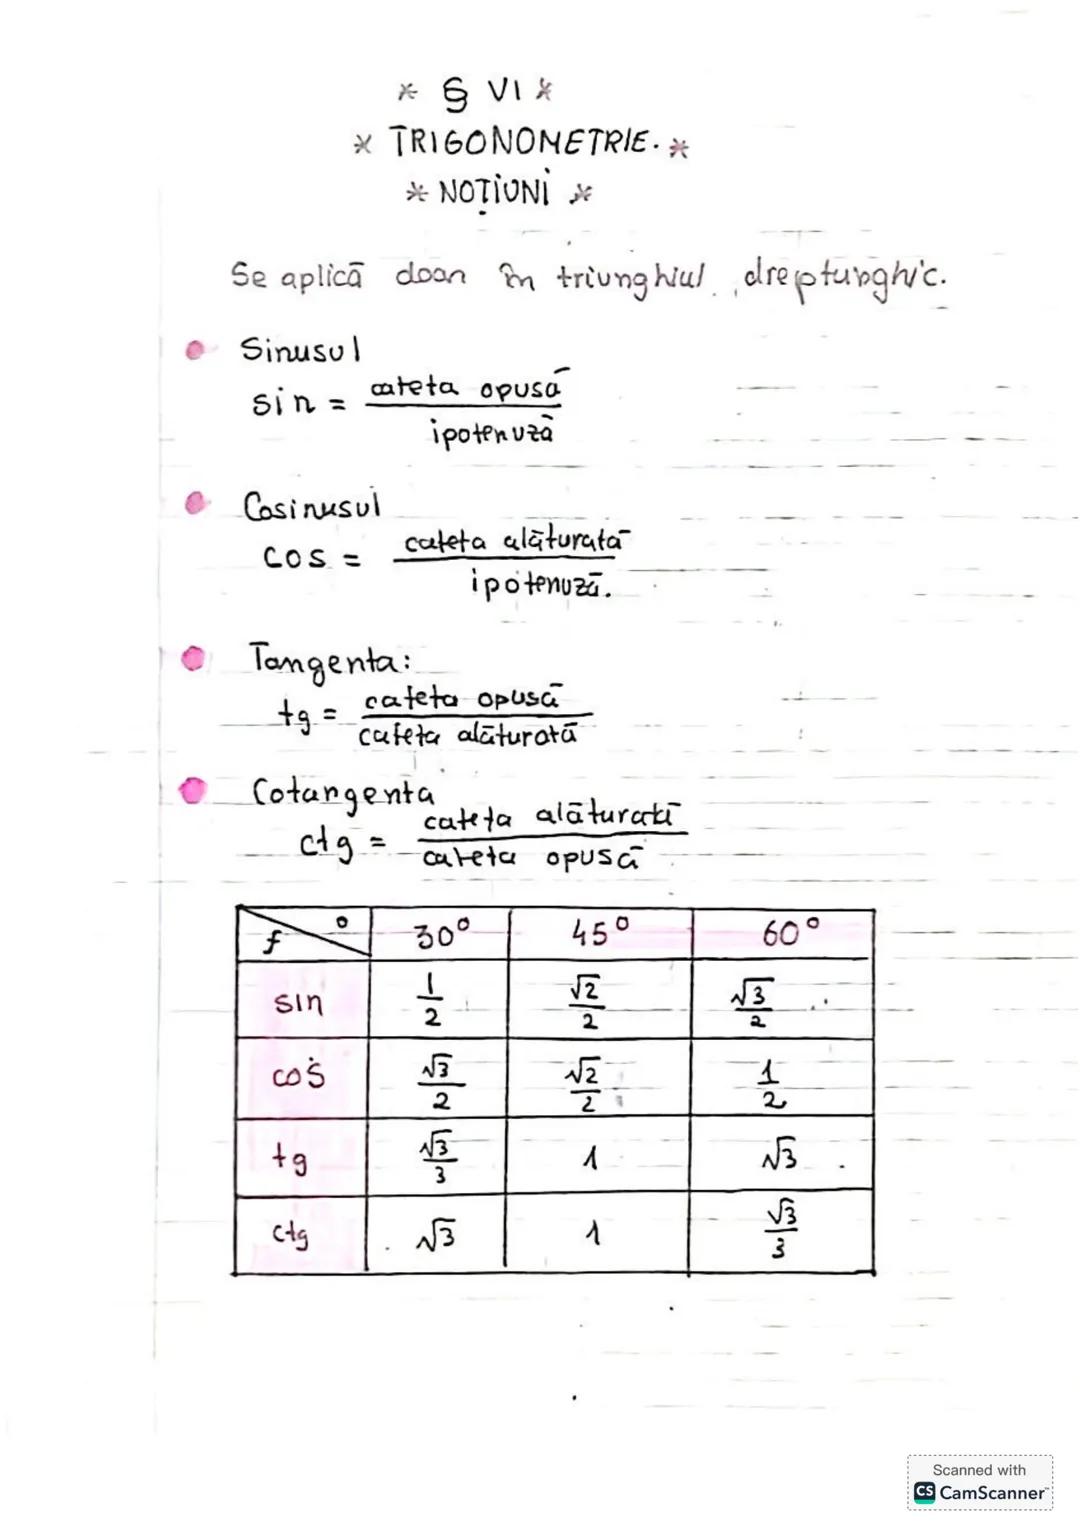 * § VI *
* TRIGONOMETRIE. *
* NOȚIUNI *
Se aplică doan în triunghiul dreptunghic.
Sinusul
sin = cateta opusă / ipotenuză
Cosinusul
cos = cateta alăturată / ipotenuză.
Tangenta:
tg = cateta opusă / cateta alăturată
Cotangenta
ctg = cateta alăturată / cateta opusă
f ° 30° 45° 60°
sin 1/2 √2/2 √3/2
cos √3/2 √2/2 1/2
tg √3/3 1 √3
ctg √3 1 √3/3
Scanned with
CS CamScanner™